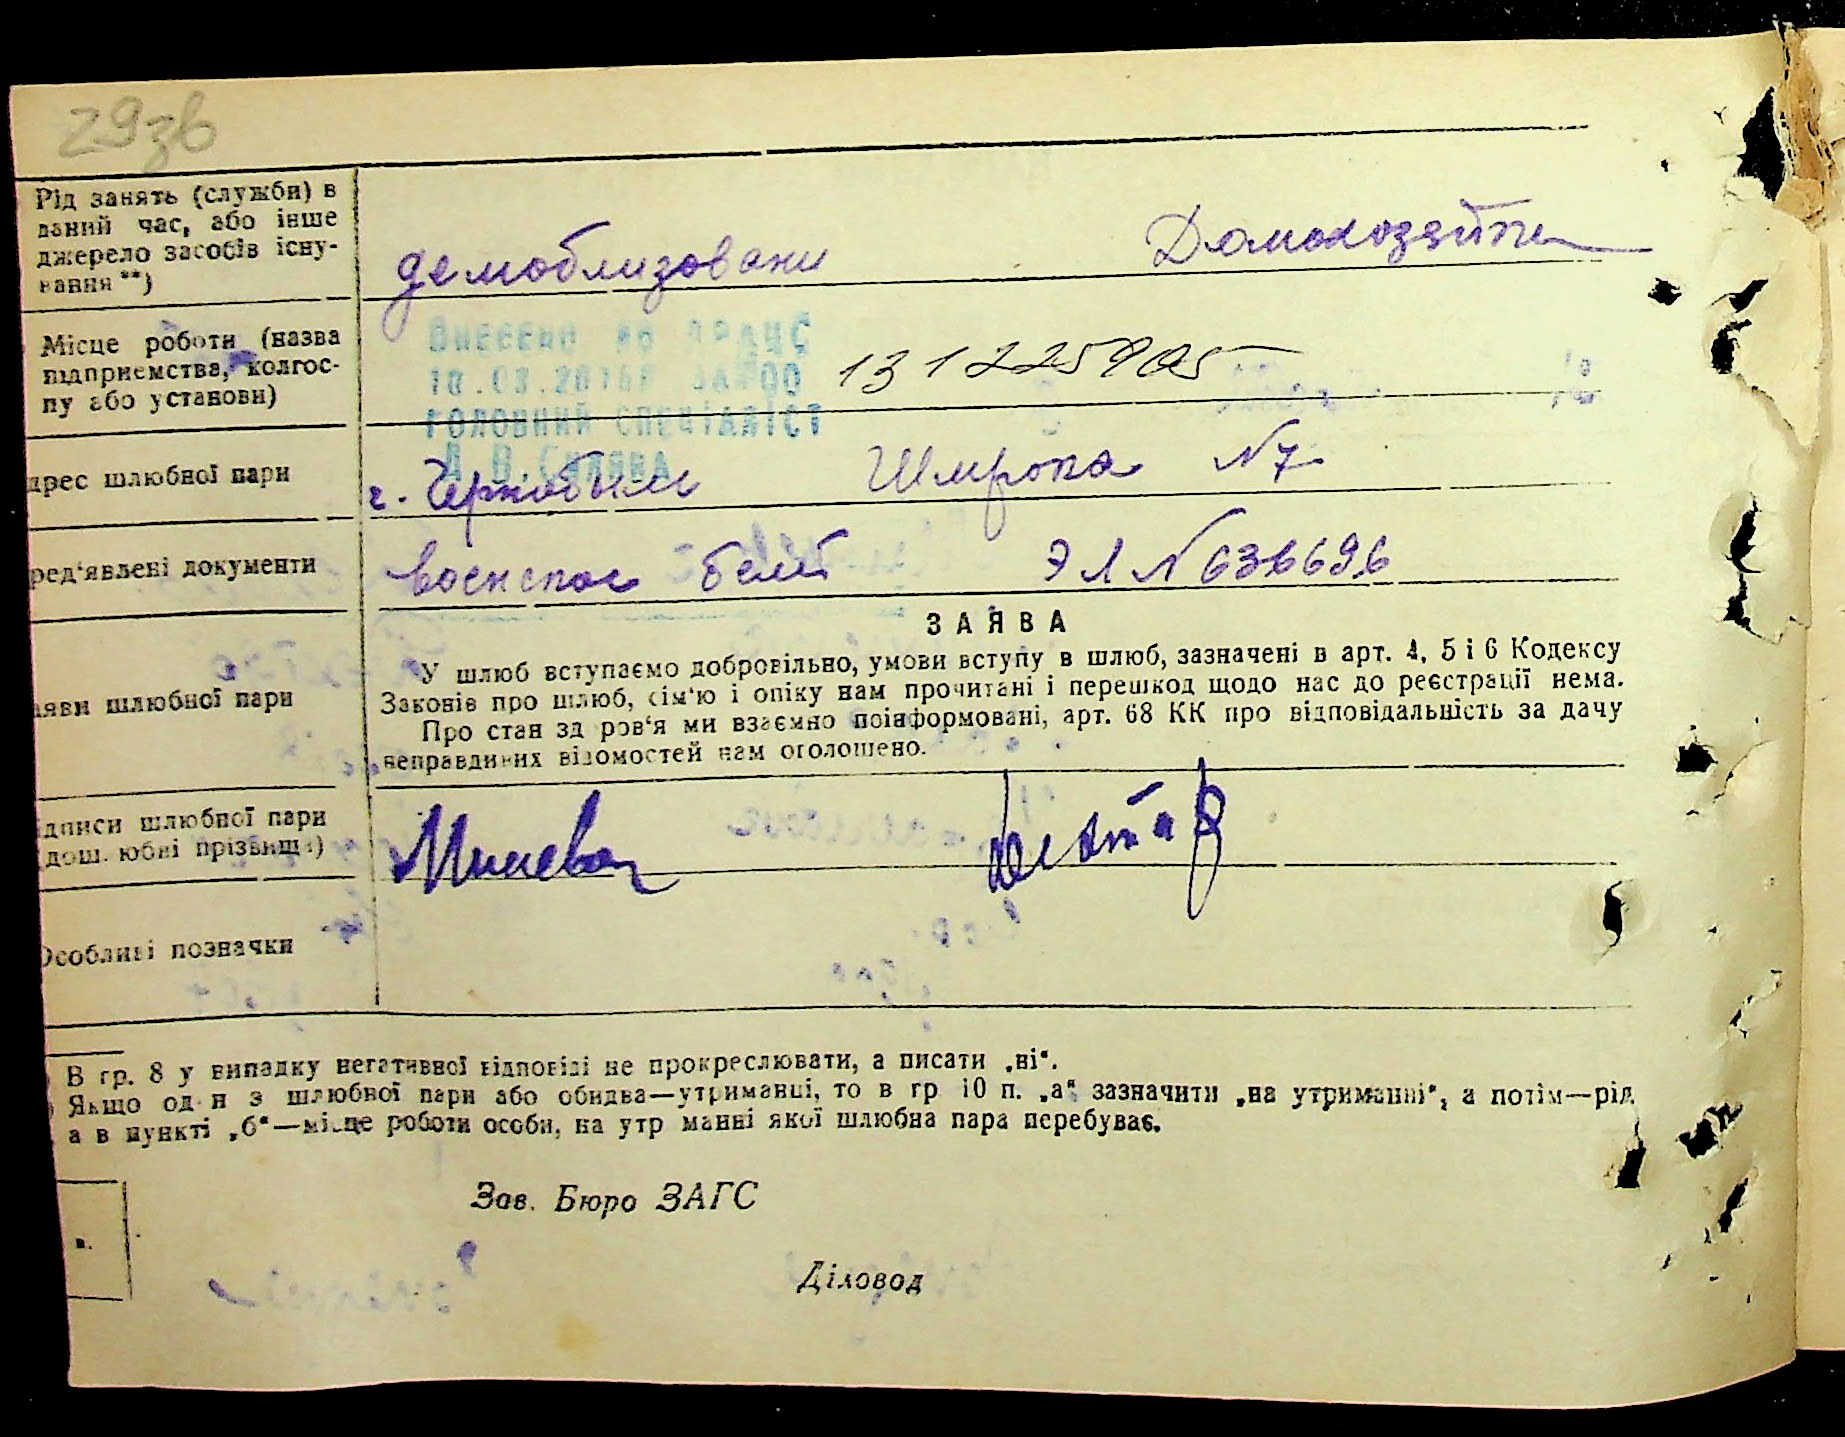 29зв
Рід занять (служби) в
даний час, або інше
джерело засобів існу-
вання **)
демоблизовани
Домохозяйка
Місце роботи (назва
підприємства, колгос-
пу або установи)
Внесено до ДРАЦС
ГОЛОВНИЙ СПЕЦІАЛІСТ
131225905
дрес шлюбної пари
г. Чернобыль
Шмрока №7
ред'явлені документи
военспос белет
ЭЛ №636696
ЗАЯВА
аяви шлюбної пари
У шлюб вступаємо добровільно, умови вступу в шлюб, зазначені в арт. 4, 5 і 6 Кодексу
Законів про шлюб, сім'ю і опіку нам прочитані і перешкод щодо нас до реєстрації нема.
Про стан здоров'я ми взаємно поінформовані, арт. 68 КК про відповідальність за дачу
неправдивих відомостей нам оголошено.
ідписи шлюбної пари
(дошлюбні прізвища)
Особливі позначки
В гр. 8 у випадку негативної відповіді не прокреслювати, а писати „ні“.
Якщо один з шлюбної пари або обидва—утриманці, то в гр 10 п. „а“ зазначити „на утриманні“, а потім—рід
а в пункті „б“—місце роботи особи, на утриманні якої шлюбна пара перебуває.
Зав. Бюро ЗАГС
в.
Діловод